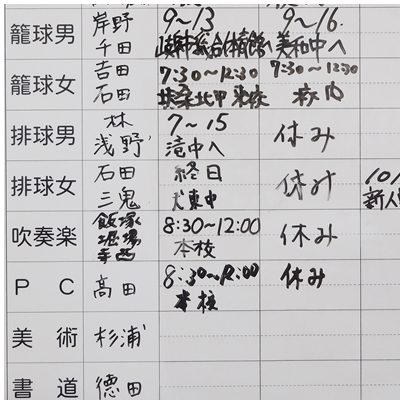 籠球男 岸野 9～13 9～16
千田 美和中へ
籠球女 吉田 7:30～12:30 7:30～12:30
石田 校内
排球男 林 7～15 休み
浅野 滝中へ
排球女 石田 終日 休み 10/
三鬼 犬東中 新人
吹奏楽 飯塚 8:30～12:00 休み
堀場 本校
寺西
PC 高田 8:30～12:00 休み
本校
美術 杉浦
書道 德田